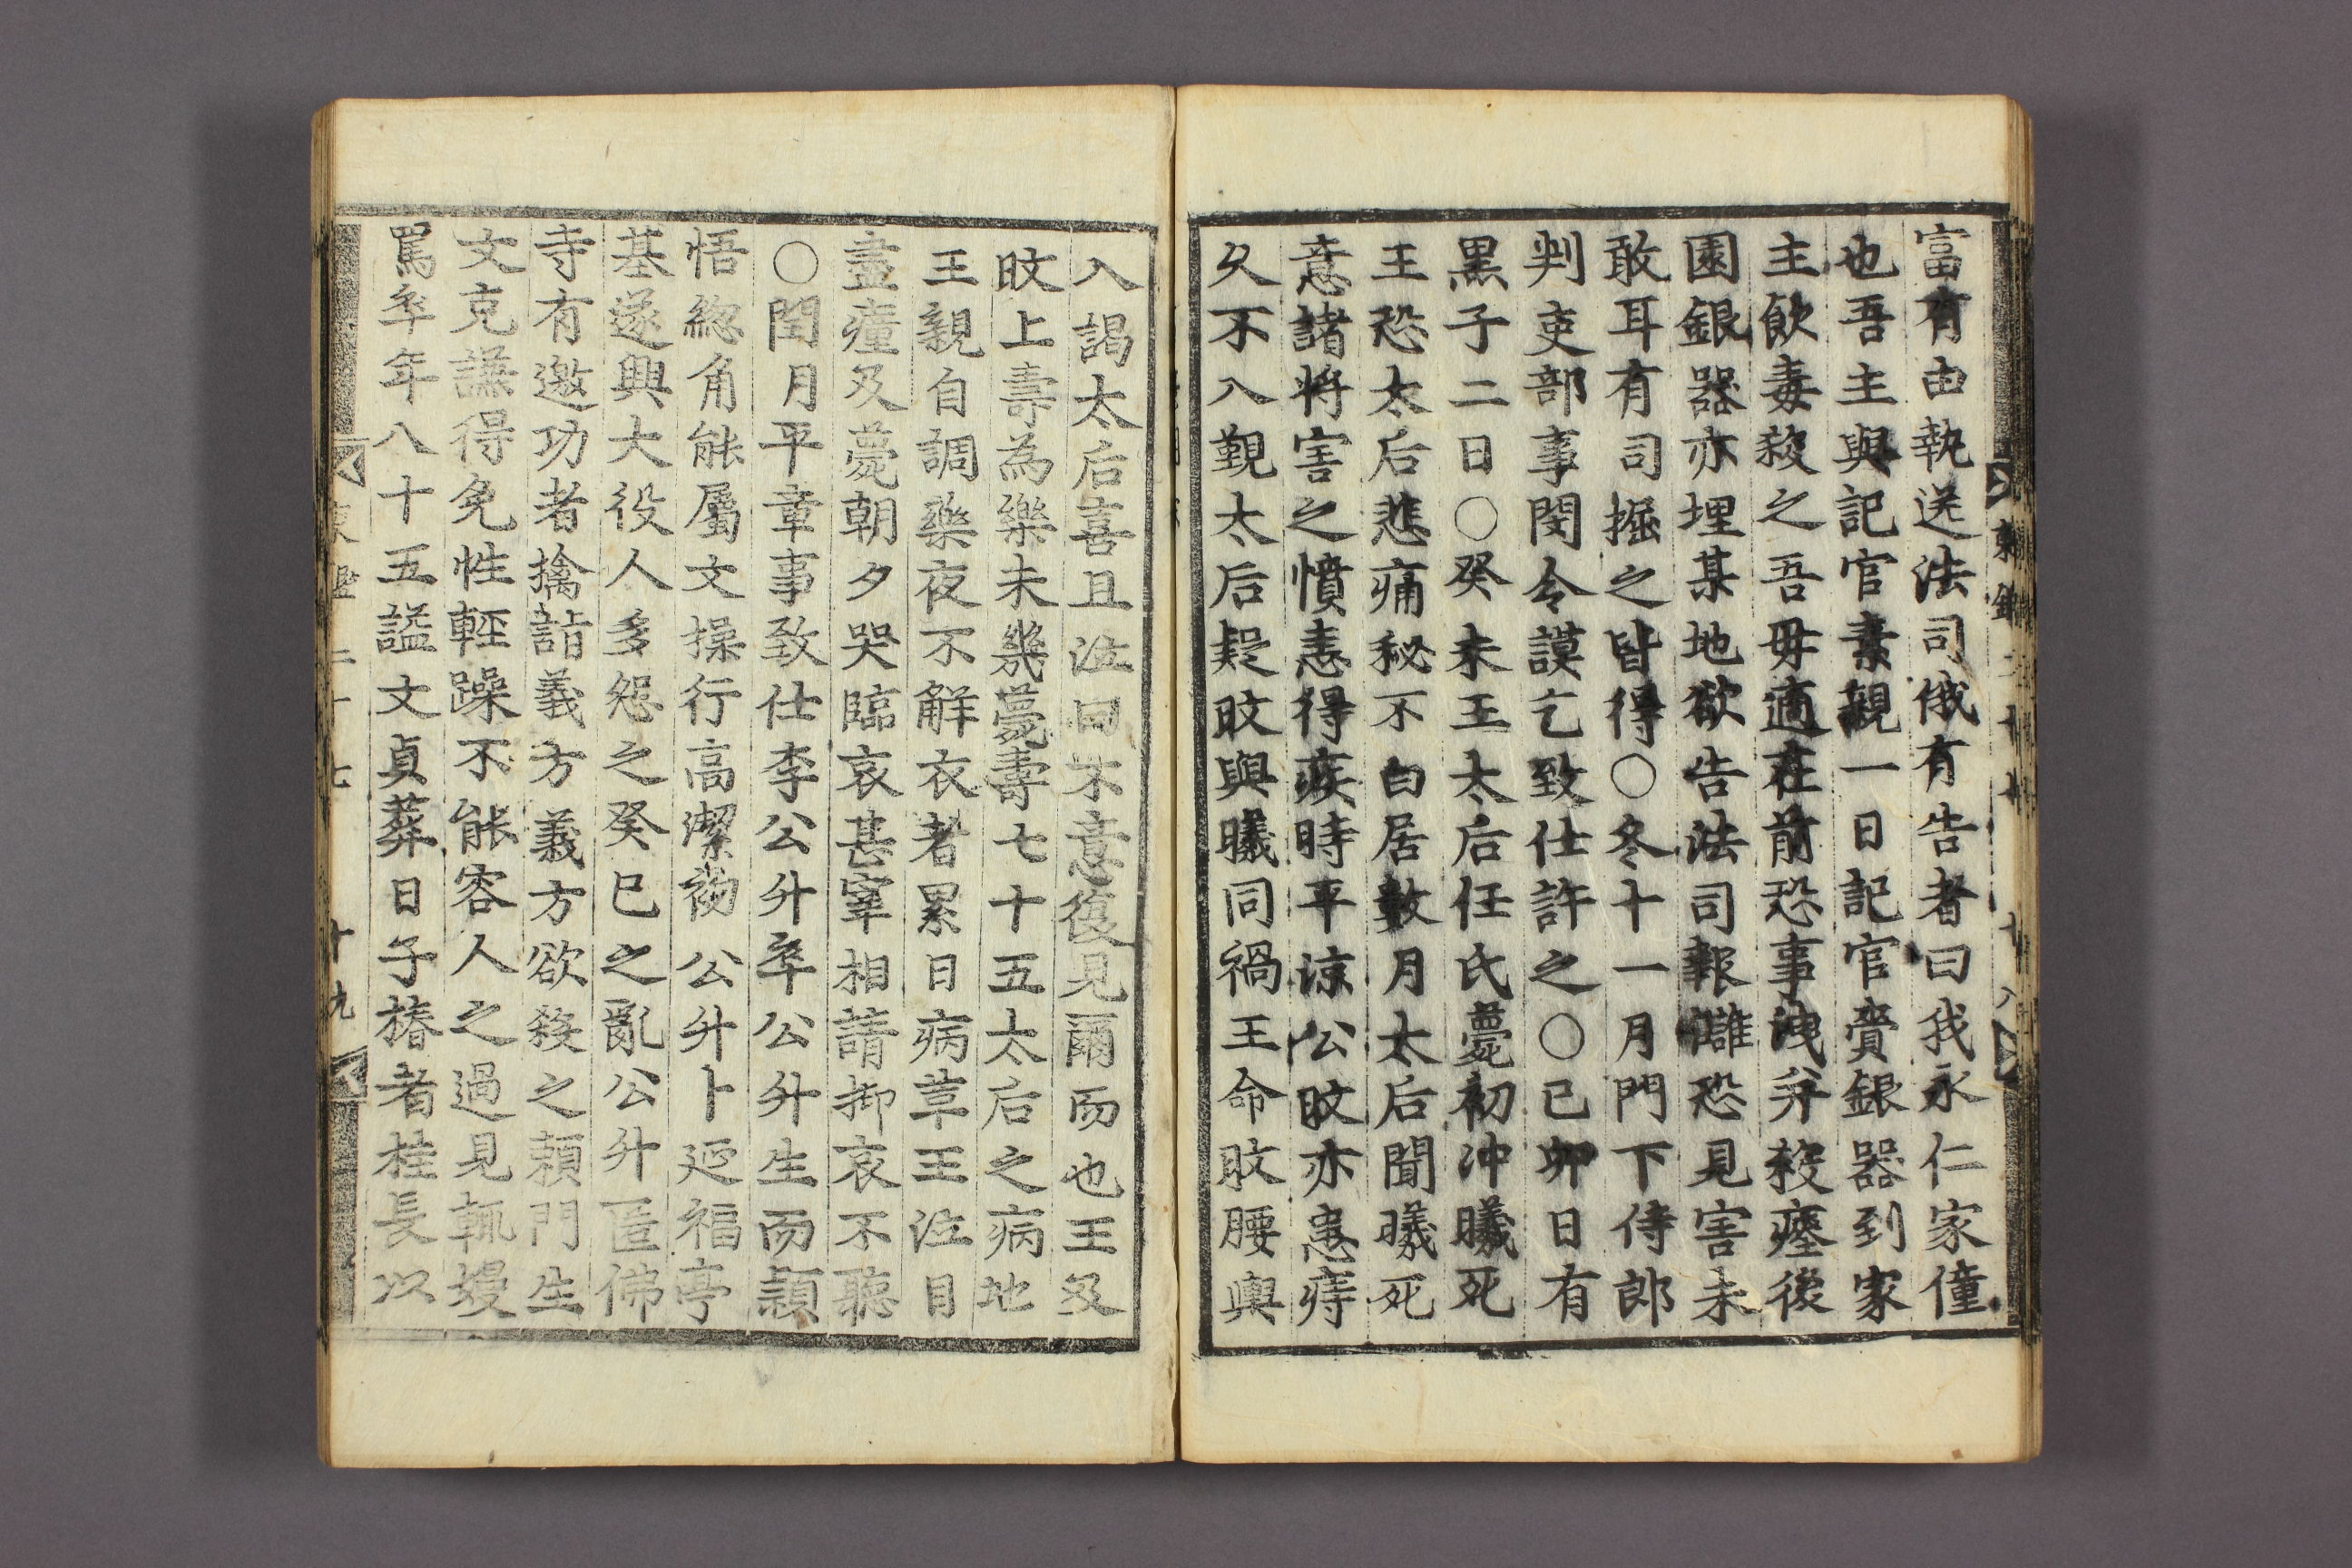 富有由執送法司俄有告者曰我永仁家僮
也吾主與記官素親一日記官賫銀器到家
主飲毒殺之吾毋適在前恐事洩幷殺瘞後
園銀器亦埋某地欲告法司報讎恐見害未
敢耳有司掘之皆得○冬十一月門下侍郎
判吏部事閔令謨乞致仕許之○己卯日有
黑子二日○癸未王太后任氏薨初沖曦死
王恐太后悲痛秘不白居數月太后聞曦死
意諸將害之憤恚得疾時平涼公旼亦患痔
久不入覲太后疑旼與曦同禍王命旼腰輿
入謁太后喜且泣曰不意復見爾面也王及
旼上壽為樂未幾薨壽七十五太后之病地
王親自調藥夜不解衣者累日病革王泣目
盡瘇及薨朝夕哭臨哀甚宰相請抑哀不聽
○閏月平章事致仕李公升卒公升生而穎
悟緫角能屬文操行高潔初公升卜延福亭
基遂興大役人多怨之癸巳之亂公升匿佛
寺有邀功者擒詣義方義方欲殺之頼門生
文克謙得免性輕躁不能容人之過見輒嫚
罵卒年八十五謚文貞葬日子椿者桂長以
東鑑 二十七 十九